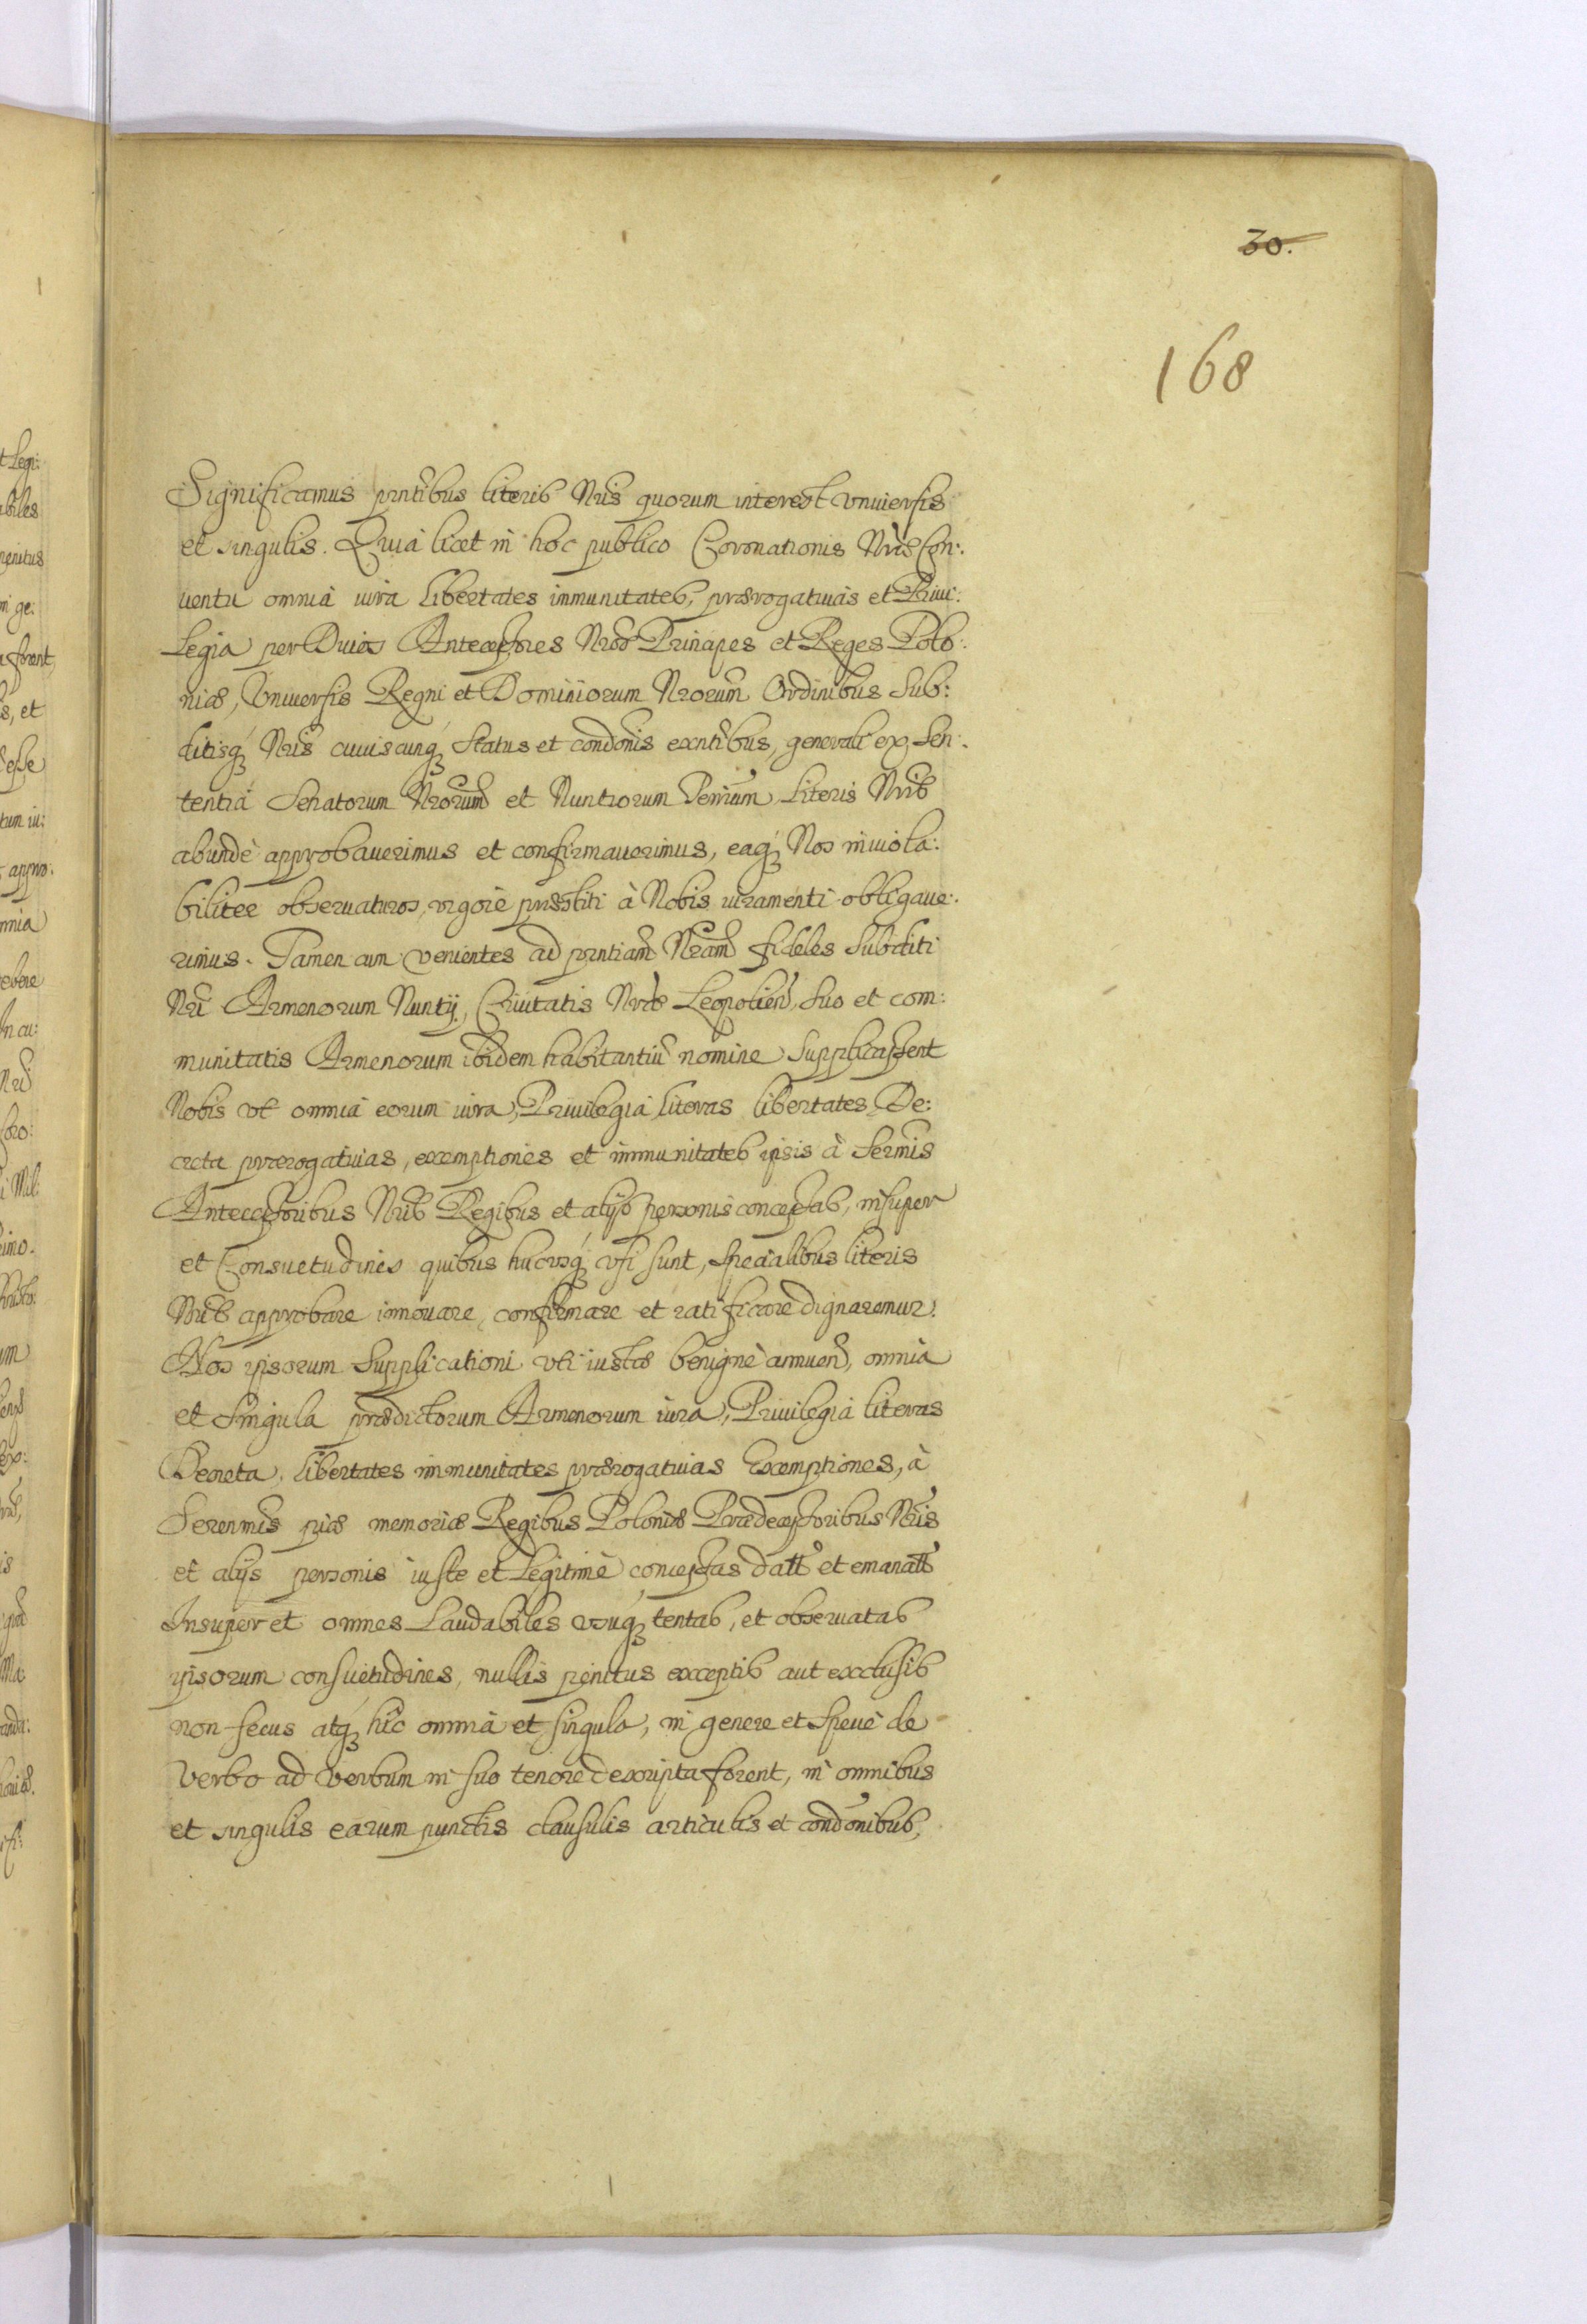 30.
168
Significamus prntibus literis Nris quorum interest vniuersis
et singulis. Quia licet in hoc publico Coronationis Nræ Con:
uentu omnia iura libertates immunitates, prærogatiuas et Priui:
legia per Diuos Antecessores Nros Principes et Reges Polo:
niæ, Vniuersis Regni et Dominiorum Nrorum Ordinibus Sub:
ditisq́ Nris cuiuiscunq́ status et condonis exntibus, generali ex Sen:
tentia Senatorum Nrorum et Nuntiorum Terrarum Literis Nris
abundè approbauerimus et confirmauerimus, eaq́ Nos inuiola:
biliter obseruaturos, vigore præstiti à Nobis iuramenti obligaue:
rimus. Tamen cum venientes ad prntiam Nram fideles Subditi
Nri Armenorum Nuntij, Ciuitatis Nræ Leopolien, suo et com:
munitatis Armenorum ibidem habitantiu nomine Supplicassent
Nobis vt omnia eorum iura, Priuilegia, literas libertates, De:
creta prærogatiuas, exemptiones et immunitates ipsis à Sermis
Antecessoribus Nris Regibus et alijs personis concessas, insuper
et Consuetudines quibus hucusq́ vsi sunt, specialibus literis
Nris approbare innouare, confirmare et ratificare dignaremur.
Nos ipsorum Supplicationi vti iustæ benignè annuen, omnia
et singula prædictorum Armenorum iura, Priuilegia literas
Decreta, libertates immunitates prærogatiuas Exemptiones, à
Serenmis piæ memoriæ Regibus Poloniæ Prædecessoribus Nris
et alijs personis iuste et legitimè concessas datt et emanatt
Insuper et omnes Laudabiles vsuq́ tentas, et obseruatas
ipsorum consuetudines, nullis penitus exceptis aut exclusis
non secus atq́ hic omnia et singula, in genere et specie de
verbo ad verbum in suo tenore descripta forent, in omnibus
et singulis earum punctis clausulis articulis et condonibus,